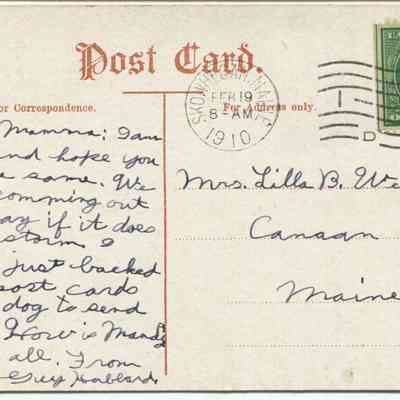 Post Card.
or Correspondence.
For Address only.
SKOWHEGAN, MAINE
FEB 19
8-AM
1910
1
D
Mamma: I am
nd hope you
e same. We
comming out
ay if it does
storm I
just backed
post cards
dog to send
How is Mandy
all. From
Guy
Mrs. Lilla B. We
Canaan
Maine